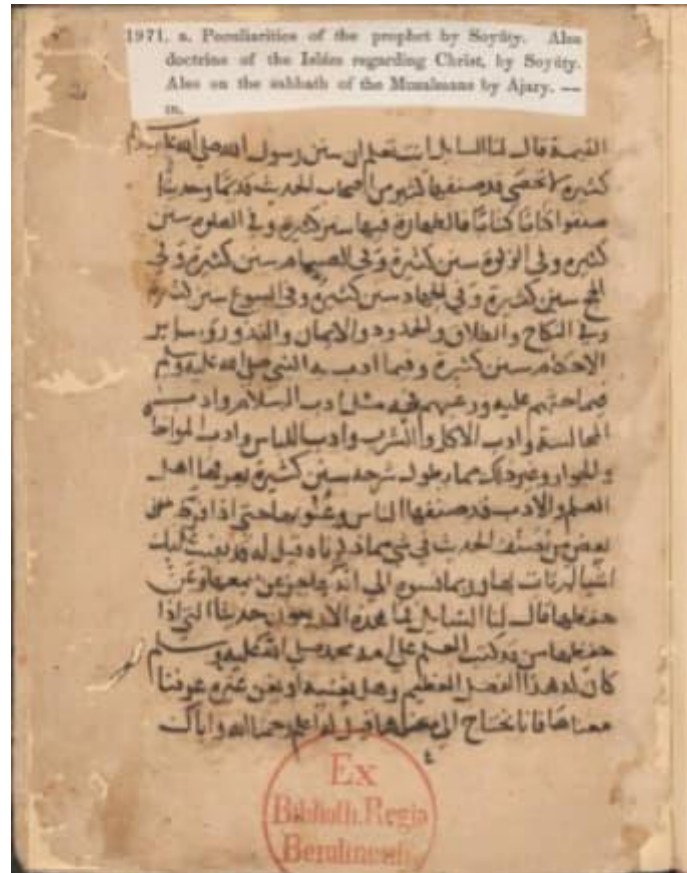 1971. a. Peculiarities of the prophet by Soyúty. Also
doctrine of the Islám regarding Christ, by Soyúty.
Also on the sabbath of the Musalmans by Ajary. —
m.
القيمة قال لنا السايل انت تعلم ان سنن رسول الله صلى الله عليه وسلم
كثيرة لا تحصى قد صنفها كثير من اصحاب الحديث قديما وحديثا
صنفوا كتابا كتابا فالطهارة فيها سنن كثيرة وفي الصلوة سنن
كثيرة وفي الزكوة سنن كثيرة وفي الصيام سنن كثيرة وفي
الحج سنن كثيرة وفي الجهاد سنن كثيرة وفي البيوع سنن كثيرة
وفي النكاح والطلاق والحدود والايمان والنذور وساير
الاحكام سنن كثيرة وفيما ادب به النبي صلى الله عليه وسلم
فيما حثهم عليه ورغبهم فيه مثل ادب السلام وادب
المجالسة وادب الاكل والشرب وادب اللباس وادب
والجوار وغير ذلك مما يطول شرحه سنن كثيرة يعرفها اهل
العلم والادب قد صنفها الناس وعنوا بها حتى اذا
بعض من يصنف الحديث في شي مما ذكرناه قيل له قد بقيت عليك
اشيا لم تات بها وربما نسبوه الى انه عاجز عن جمعها وعن
حفظها قال لنا السايل فما هذه الاربعون حديثا التي اذا
حفظها من قد كتب العلم على امة محمد صلى الله عليه وسلم
كان له هذا الفضل العظيم وهل بعينها او بغير عينها عرفنا
معناها فانا نحتاج الى قيل له اعلم رحمنا الله واياك
Ex
Biblioth. Regia
Berolinensi.